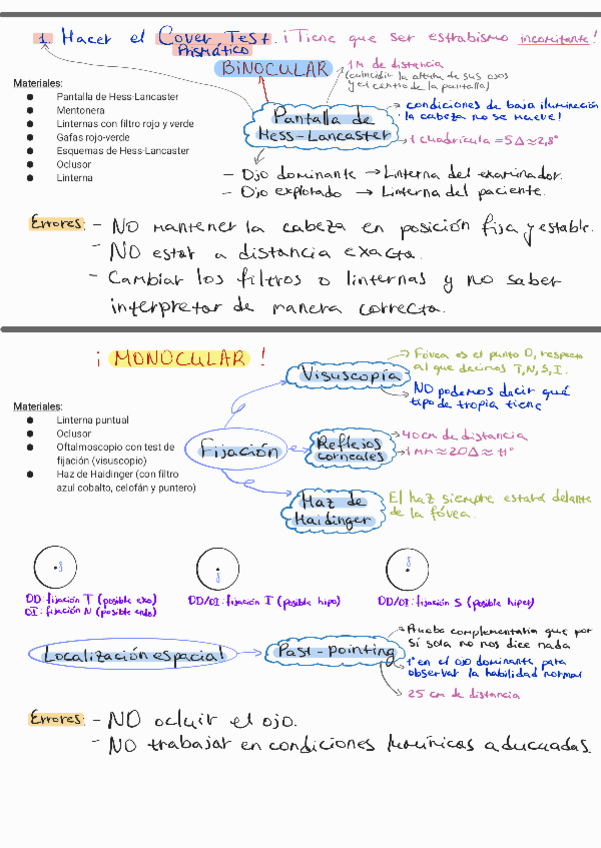 1. Hacer el Cover Test. ¡Tiene que ser estrabismo incomitante!
Prismático
BINOCULAR
1M de distancia
(coincidir la altura de sus ojos
y el centro de la pantalla)
Materiales:
● Pantalla de Hess-Lancaster
● Mentonera
● Linternas con filtro rojo y verde
● Gafas rojo-verde
● Esquemas de Hess-Lancaster
● Oclusor
● Linterna
Pantalla de
Hess-Lancaster
condiciones de baja iluminación
la cabeza no se mueve!
1 cuadrícula = 5Δ ≈ 2,8°
- Ojo dominante → Linterna del examinador.
- Ojo explorado → Linterna del paciente.
Errores: - NO mantener la cabeza en posición fija y estable.
- NO estar a distancia exacta.
- Cambiar los filtros o linternas y no saber
interpretar de manera correcta.
¡MONOCULAR!
Visuscopía
Fóvea es el punto 0, respecto
al que decimos T,N,S,I.
NO podemos decir qué
tipo de tropia tiene
Materiales:
● Linterna puntual
● Oclusor
● Oftalmoscopio con test de
fijación (visuscopio)
● Haz de Haidinger (con filtro
azul cobalto, celofán y puntero)
Fijación
Reflejos
corneales
40 cm de distancia
1 mm ≈ 20Δ ≈ 11°
Haz de
Haidinger
El haz siempre estará delante
de la fóvea.
OD: fijación T (posible exo)
OI: fijación N (posible endo)
OD/OI: fijación I (posible hipo)
OD/OI: fijación S (posible hiper)
Localización espacial
Past-pointing
Prueba complementaria que por
sí sola no nos dice nada
1º en el ojo dominante para
observar la habilidad normal
25 cm de distancia
Errores: - NO ocluir el ojo.
- NO trabajar en condiciones lumínicas adecuadas.